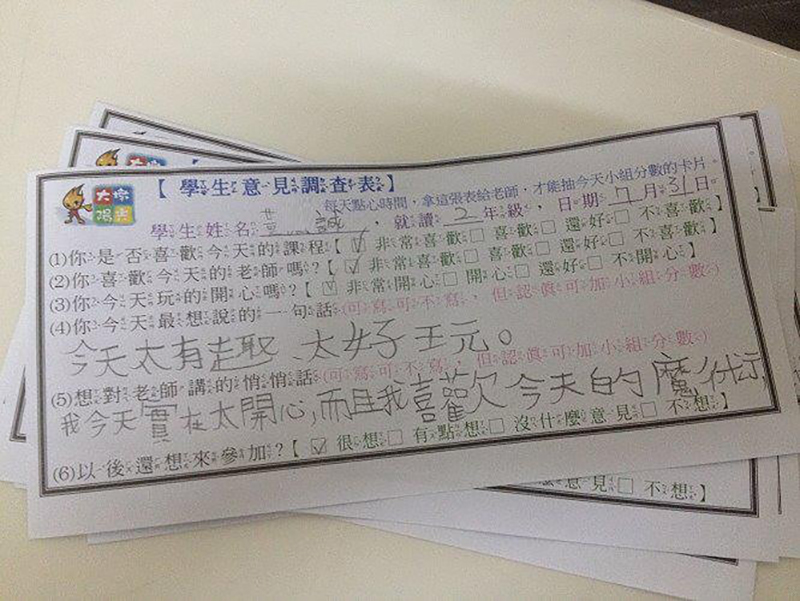 大衆陽光
【學生意見調查表】
每天點心時間，拿這張表給老師，才能抽今天小組分數的卡片。
學生姓名 黃 誠，就讀 2 年級，日期 7 月 31 日
(1)你是否喜歡今天的課程【☑ 非常喜歡□ 喜歡□ 還好□ 不喜歡】
(2)你喜歡今天的老師嗎?【☑ 非常喜歡□ 喜歡□ 還好□ 不喜歡】
(3)你今天玩的開心嗎?【☑ 非常開心□ 開心□ 還好□ 不開心】
(4)你今天最想說的一句話(可寫可不寫，但認真可加小組分數)
今天太有趣、太好玩。
(5)想對老師講的悄悄話(可寫可不寫，但認真可加小組分數)
我今天實在太開心,而且我喜歡今天的魔術
(6)以後還想來參加?【☑ 很想□ 有點想□ 沒什麼意見□ 不想】
意見□ 不想】